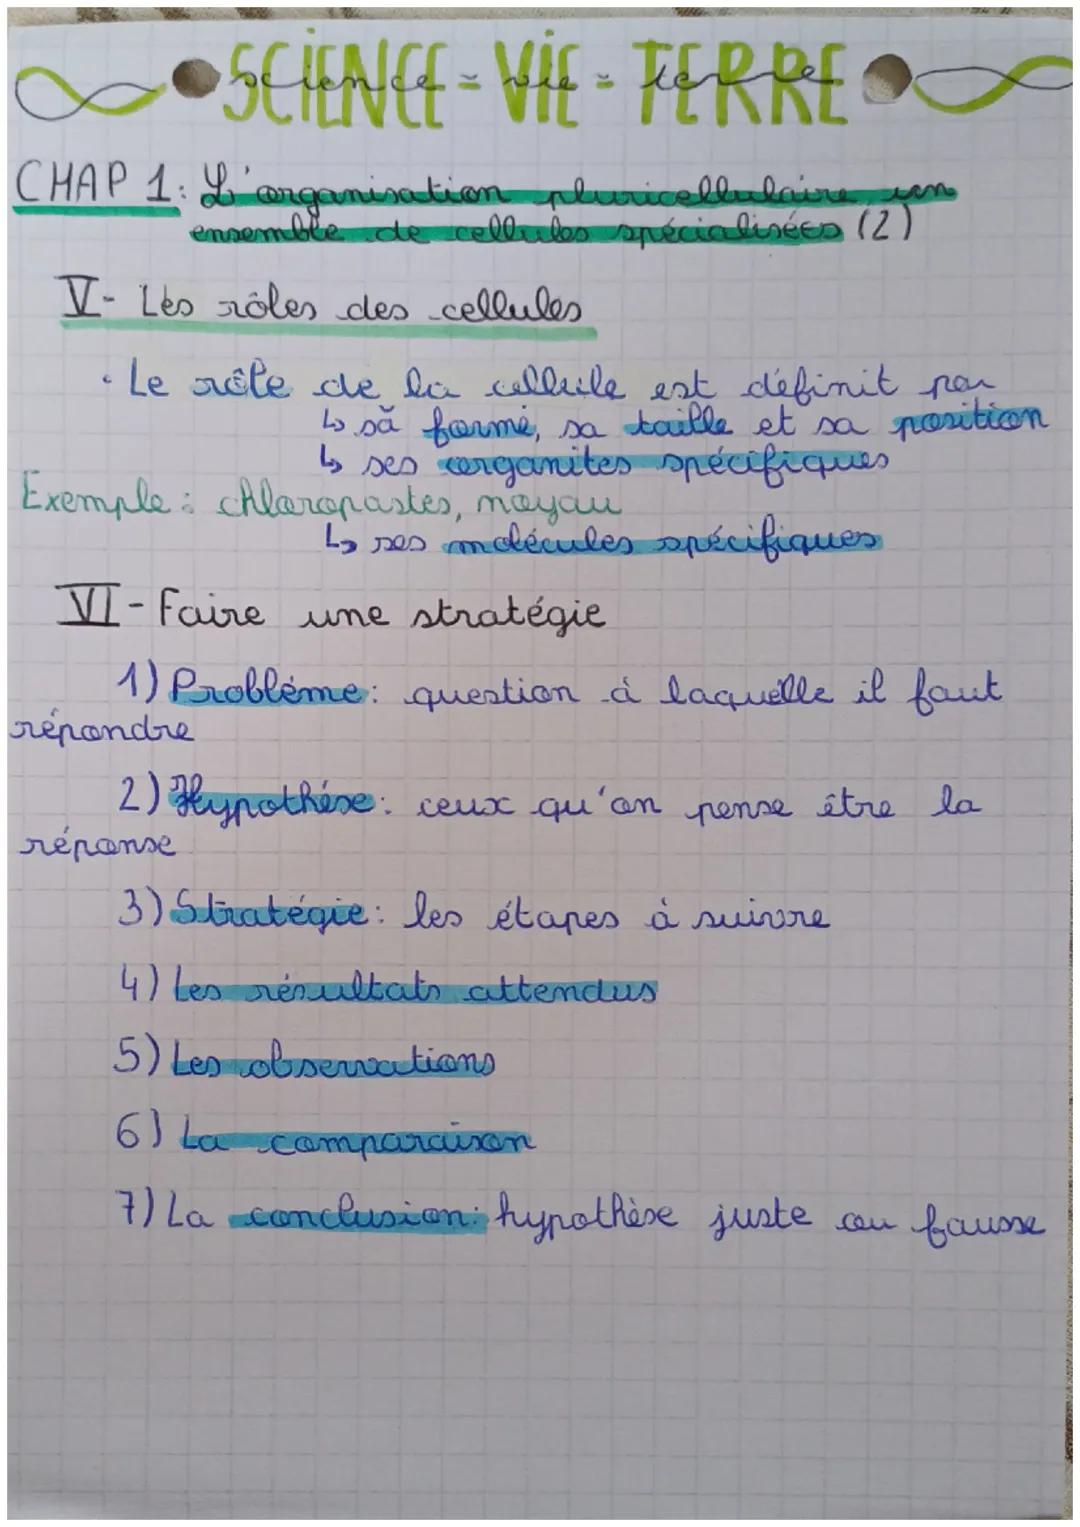 SCIENCE - VIE - TERRE
science vie terre
CHAP 1: L'organisation pluricellulaire, un
ensemble de cellules spécialisées (2)
V- Les rôles des cellules
• Le rôle de la cellule est définit par
↳ sa forme, sa taille et sa position
↳ ses organites spécifiques
Exemple: chloropastes, noyau
↳ ses molécules spécifiques
VI- Faire une stratégie
1) Probléme: question à laquelle il faut
répondre
2) Hypothése: ceux qu'on pense être la
réponse
3) Stratégie: les étapes à suivre
4) Les résultats attendus
5) Les observations
6) La comparaison
7) La conclusion: hypothèse juste ou fausse